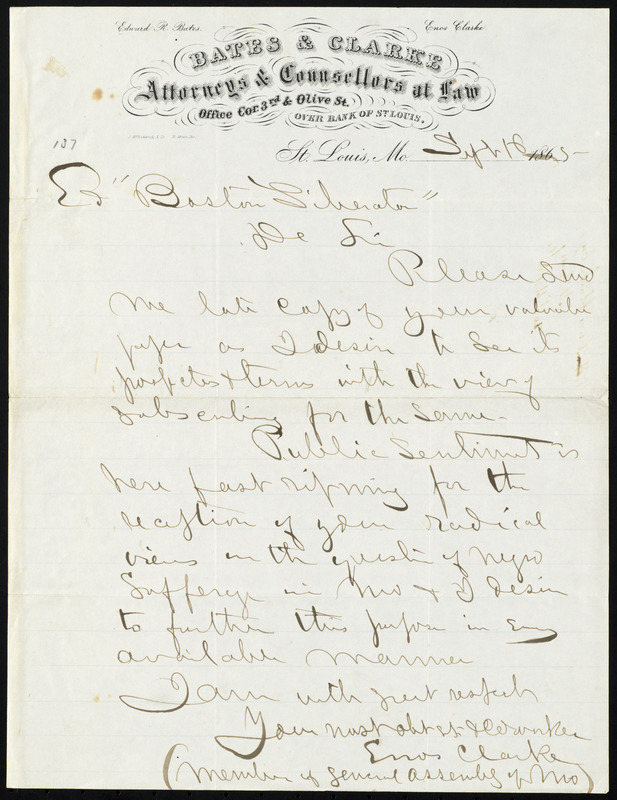 Edward R. Bates. Enos Clarke
BATES & CLARKE
Attorneys & Counsellors at Law
Office Cor. 3rd & Olive St.
OVER BANK OF ST LOUIS.
187
St. Louis, Mo. Sept 18 1865-
Ed "Boston Liberator"
De Sir
Please Send
me late copy of your valuable
paper as I desire to see its
prospectus & terms with the view of
subscribing for the same-
Public Sentiment is
here fast ripning for the
reception of your radical
views on the question of negro
Sufferage in Mo & I desire
to further this purpose in every
available manner
I am with great respect
Your most obt st & Coworker
Enos Clarke
(Member of General Assembly of Mo)